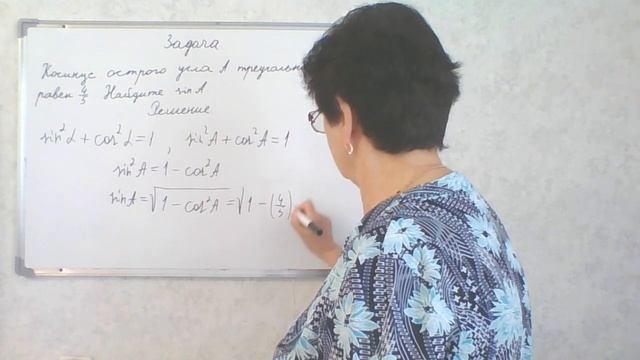 Задача
Косинус острого угла A треуголь
равен 4/5 Найдите sin A
Решение
sin²α + cos²α = 1, sin²A + cos²A = 1
sin²A = 1 - cos²A
sin A = √(1 - cos²A) = √1 - (4/5)